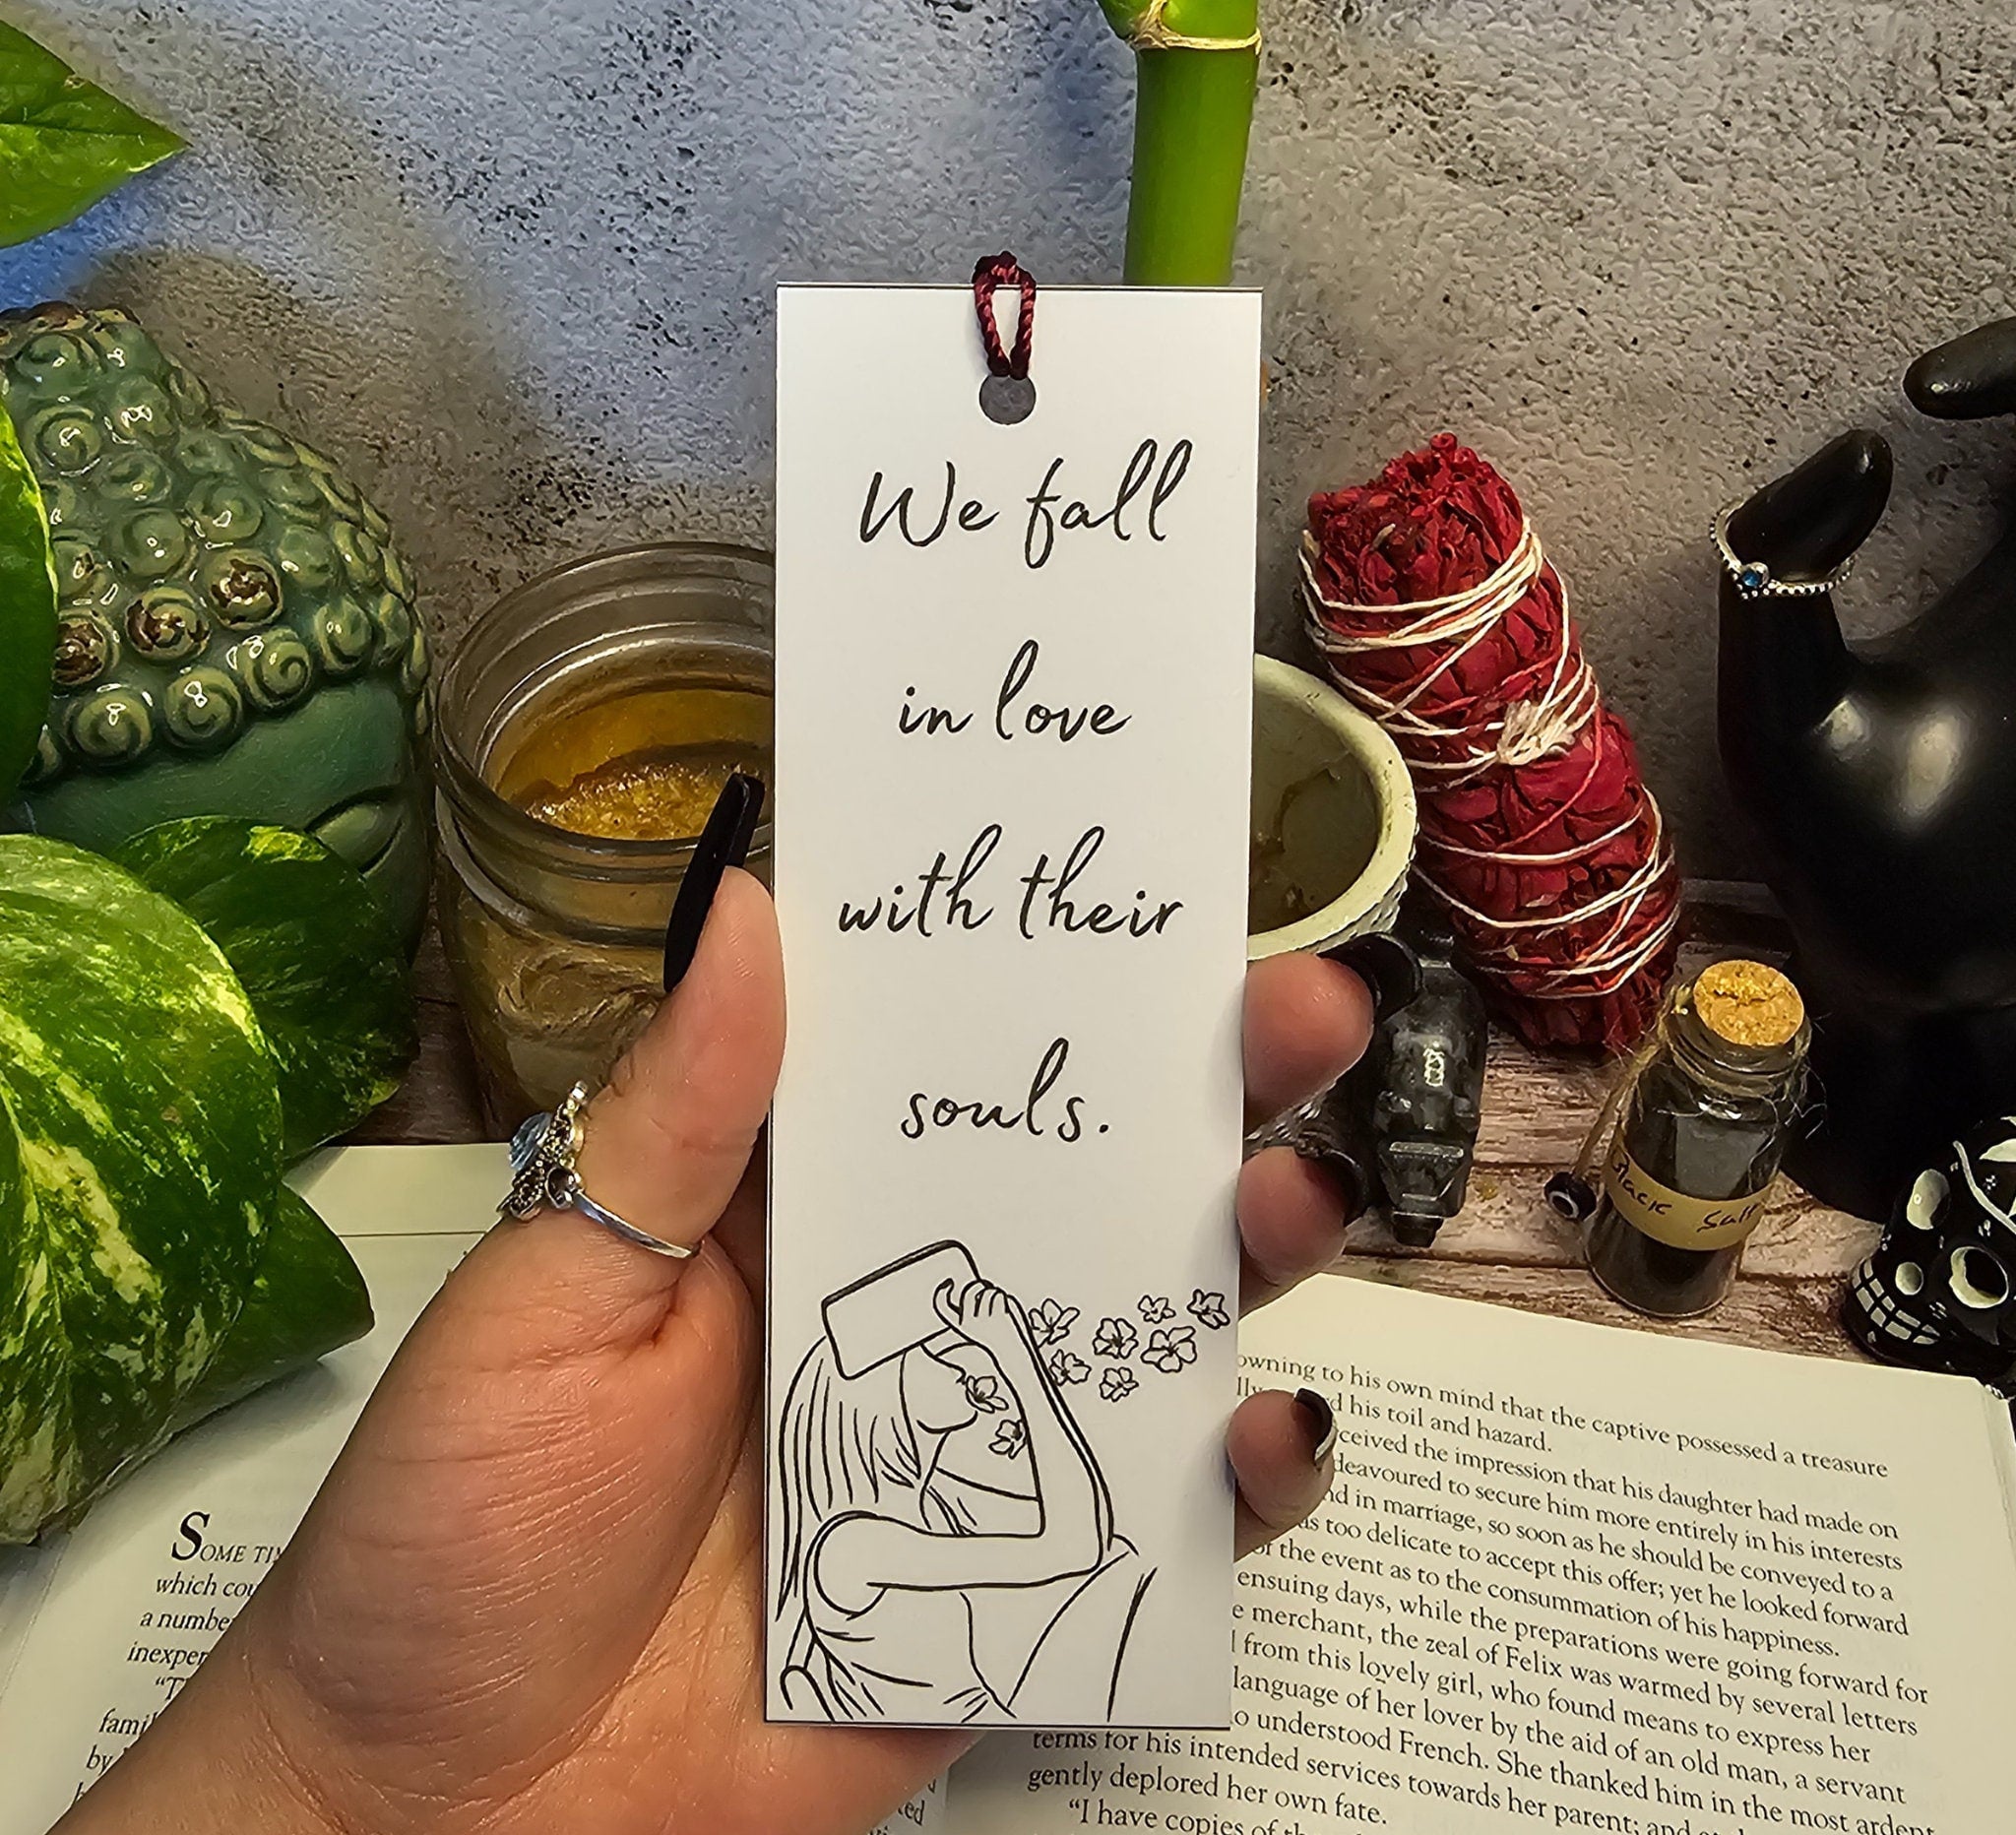 We fall
in love
with their
souls.
Black Salt
SOME TI
which cou
a number
inexper
"T
fami
by
owning to his own mind that the captive possessed a treasure
d his toil and hazard.
ceived the impression that his daughter had made on
deavoured to secure him more entirely in his interests
nd in marriage, so soon as he should be conveyed to a
as too delicate to accept this offer; yet he looked forward
of the event as to the consummation of his happiness.
ensuing days, while the preparations were going forward for
e merchant, the zeal of Felix was warmed by several letters
from this lovely girl, who found means to express her
language of her lover by the aid of an old man, a servant
o understood French. She thanked him in the most ardent
terms for his intended services towards her parent; and
gently deplored her own fate.
"I have copies of